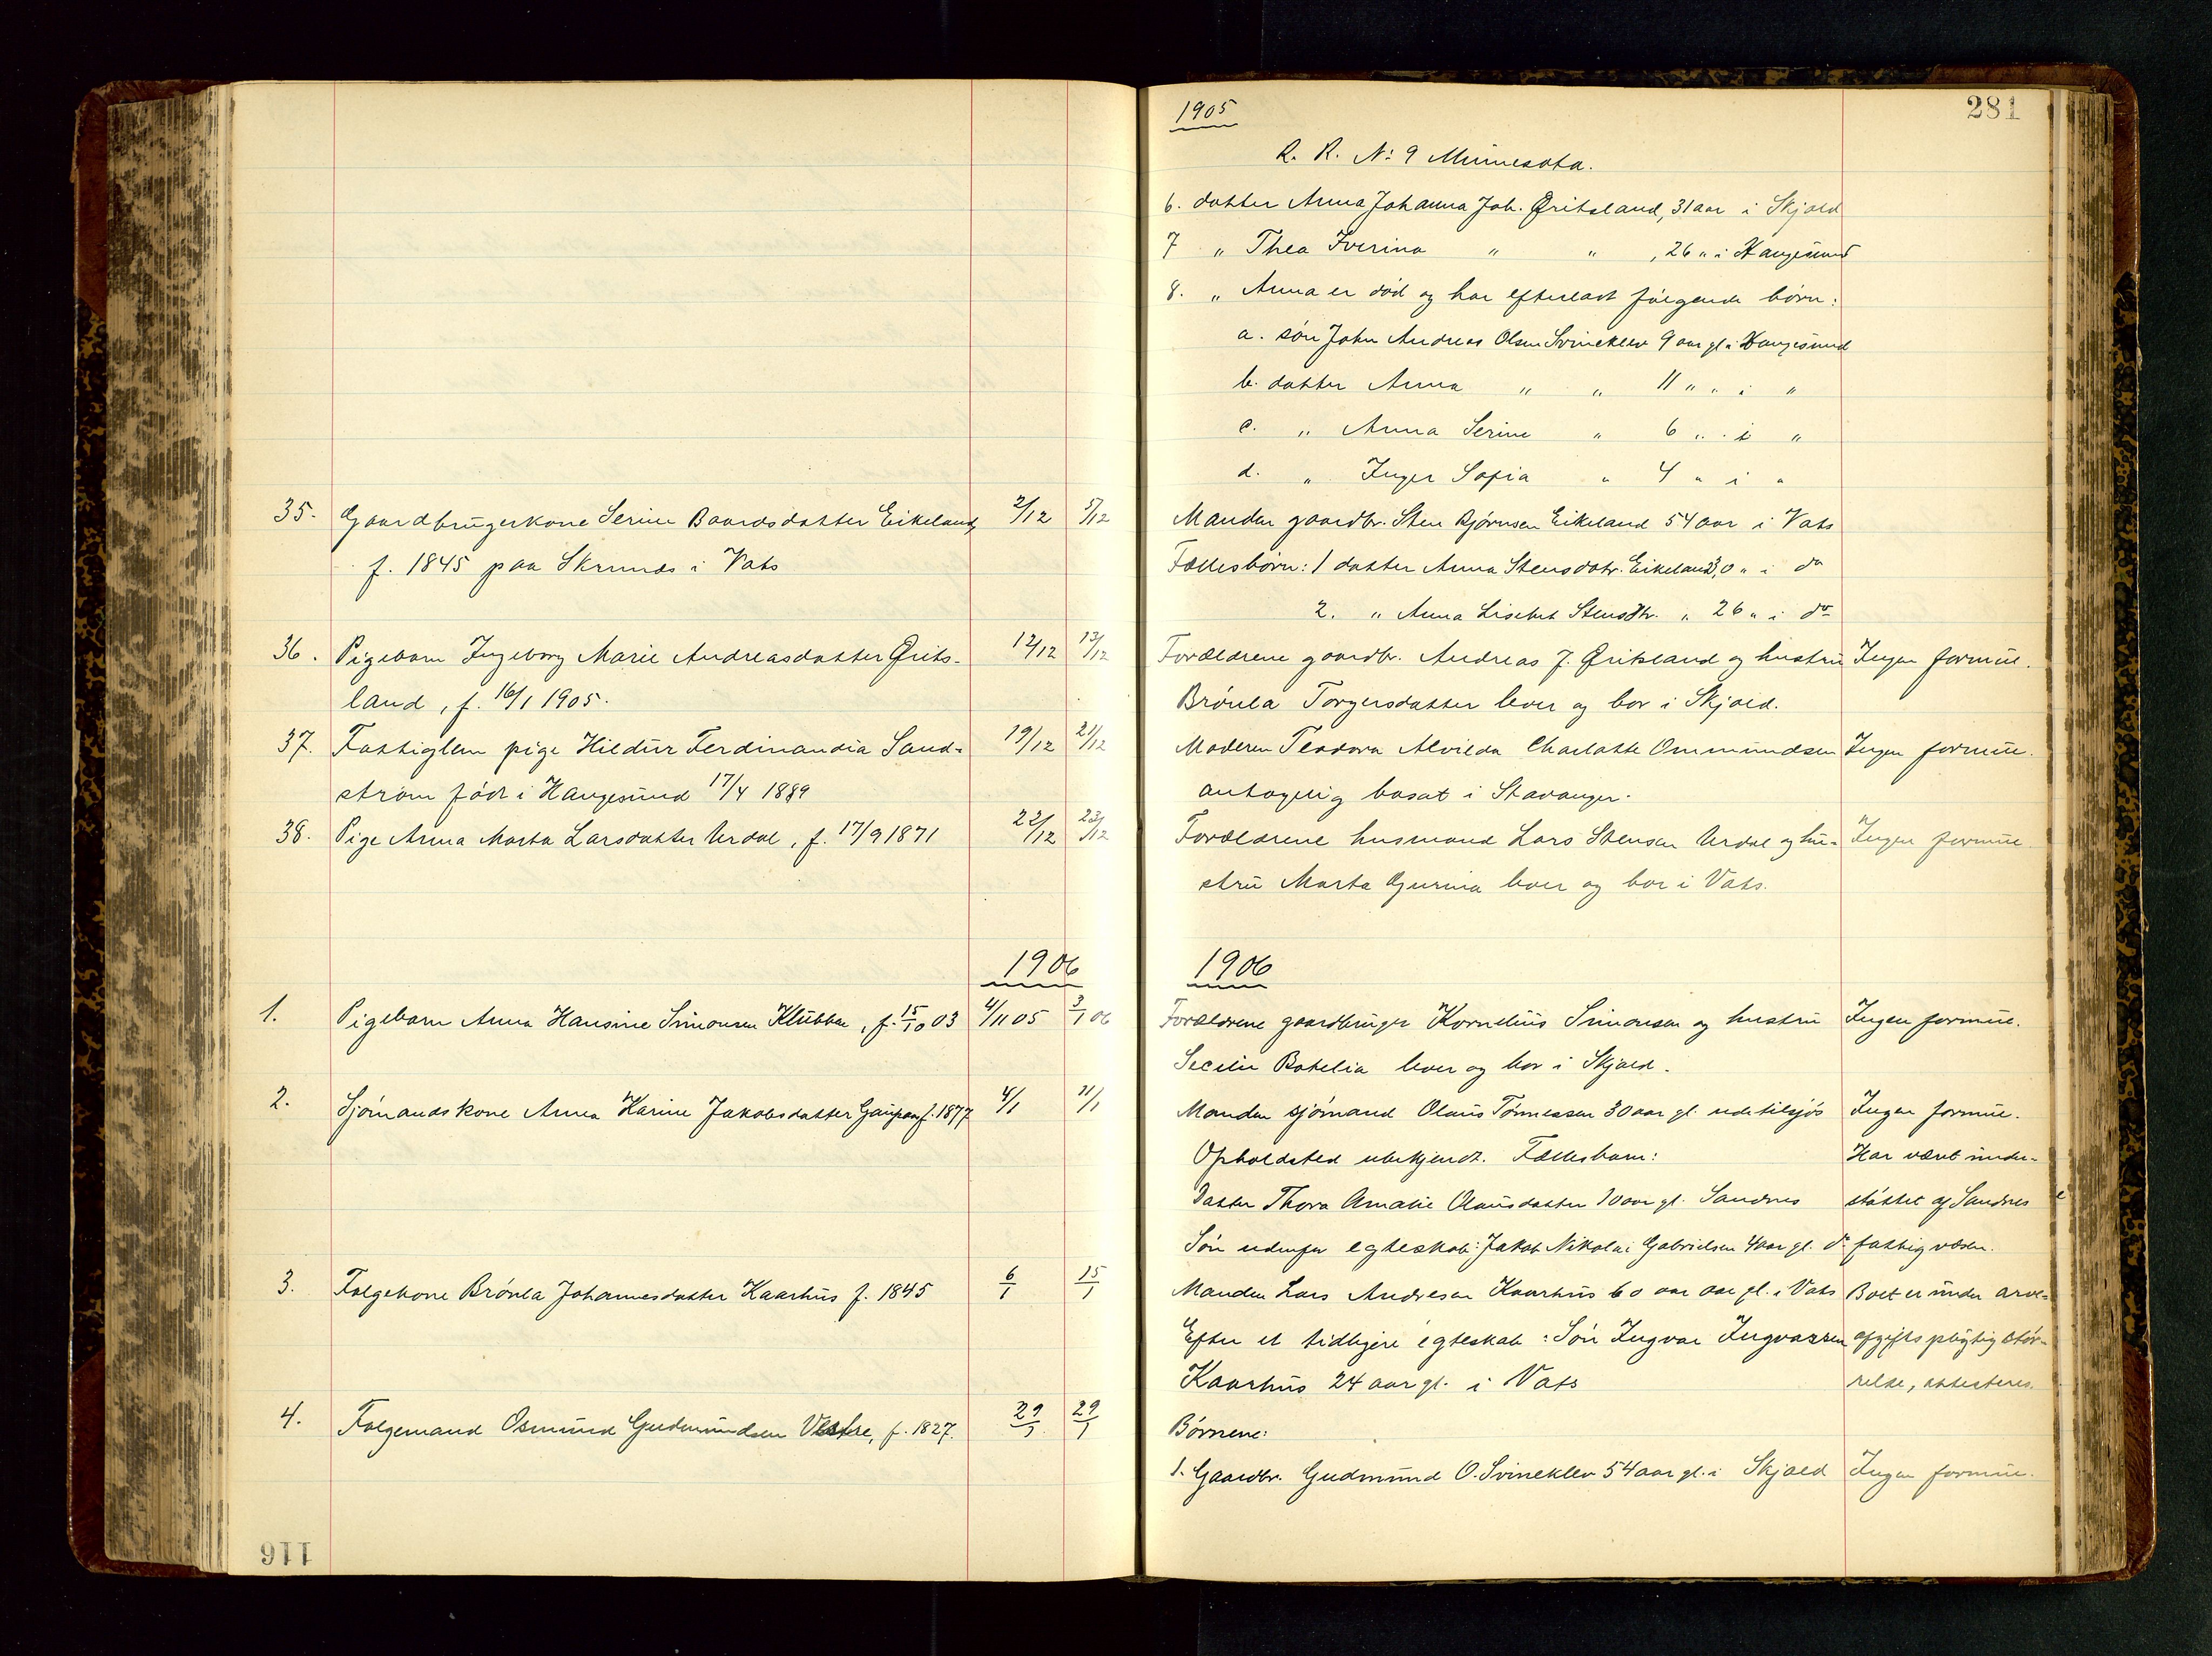 35. Gaardbrugerkone Serine Baardsdatter Eikeland, 2/12 5/12
f. 1845 paa Skrunds i Vats
36. Pigebarn Ingeborg Marie Andreasdatter Örits- 12/12 13/12
land, f. 16/1 1905.
37. Fattiglem pige Hildur Ferdinandia Sand- 19/12 21/12
strøm født i Haugesund 17/4 1889
38. Pige Anna Marta Larsdatter Urdal, f. 17/9 1871 22/12 23/12
1906
1. Pigebarn Anna Hansine Simonsen Klubben, f. 15/10 03 4/11 05 3/1 06
2. Sjømandskone Anna Karine Jakobsdatter Gaupaas f. 1877 4/1 11/1
3. Folgekone Brønla Johannesdatter Kaarhus f. 1845 6/1 15/1
4. Folgemand Osmund Gudmundsen Vestre, f. 1827. 29/1 29/1
116
1905
281
R. R. No 9 Minnesota.
6. datter Anna Johanna Joh. Öritsland, 31 aar i Skjold
7 " Thea Iverina " " , 26 " i Haugesund
8. " Anna er død og har efterladt følgende børn:
a. søn John Andreas Olsen Svineklev 9 aar gl i Haugesund
b. datter Anna " " 11 " " i "
c. " Anna Serine " 6 " " i "
d. " Inger Sofia " 4 " i "
Manden gaardbr. Sten Bjørnsen Eikeland 54 aar i Vats
Fællesbørn: 1 datter Anna Stensdatr. Eikeland 30 " i do
2. " Anna Lisebet Stensdtr. " 26 " i do
Forældrene gaardbr. Andreas J. Öritsland og hustru Ingen formue.
Brønla Torgersdatter lever og bor i Skjold.
Moderen Teodora Alvilda Charlotte Ommundsen Ingen formue.
antagelig bosat i Stavanger.
Forældrene husmand Lars Stensen Urdal og hu- Ingen formue.
stru Marta Gurina lever og bor i Vats.
1906
Forældrene gaardbruger Kornelius Simonsen og hustru Ingen formue.
Secilie Botelia lever og bor i Skjold.
Manden sjømand Olaus Tønnessen 30 aar gl. ude tilsjøs Ingen formue.
Opholdsted ubekjendt. Fællesbarn: Har været under-
Datter Thora Amalie Olausdatter 10 aar gl. Sandnes støttet af Sandnes
Søn udenfor egteskab: Jakob Nikolai Gabrielsen 4 aar gl. do fattigvæsen.
Manden Lars Andresen Kaarhus 60 aar aar gl. i Vats Boet er under arve-
Efter et tidligere egteskab: Søn Ingvar Ingvarsen afgifts pligtig stør-
Kaarhus 24 aar gl. i Vats relse, attesteres.
Børnene:
1. Gaardbr. Gudmund O. Svineklev 54 aar gl. i Skjold Ingen formue.